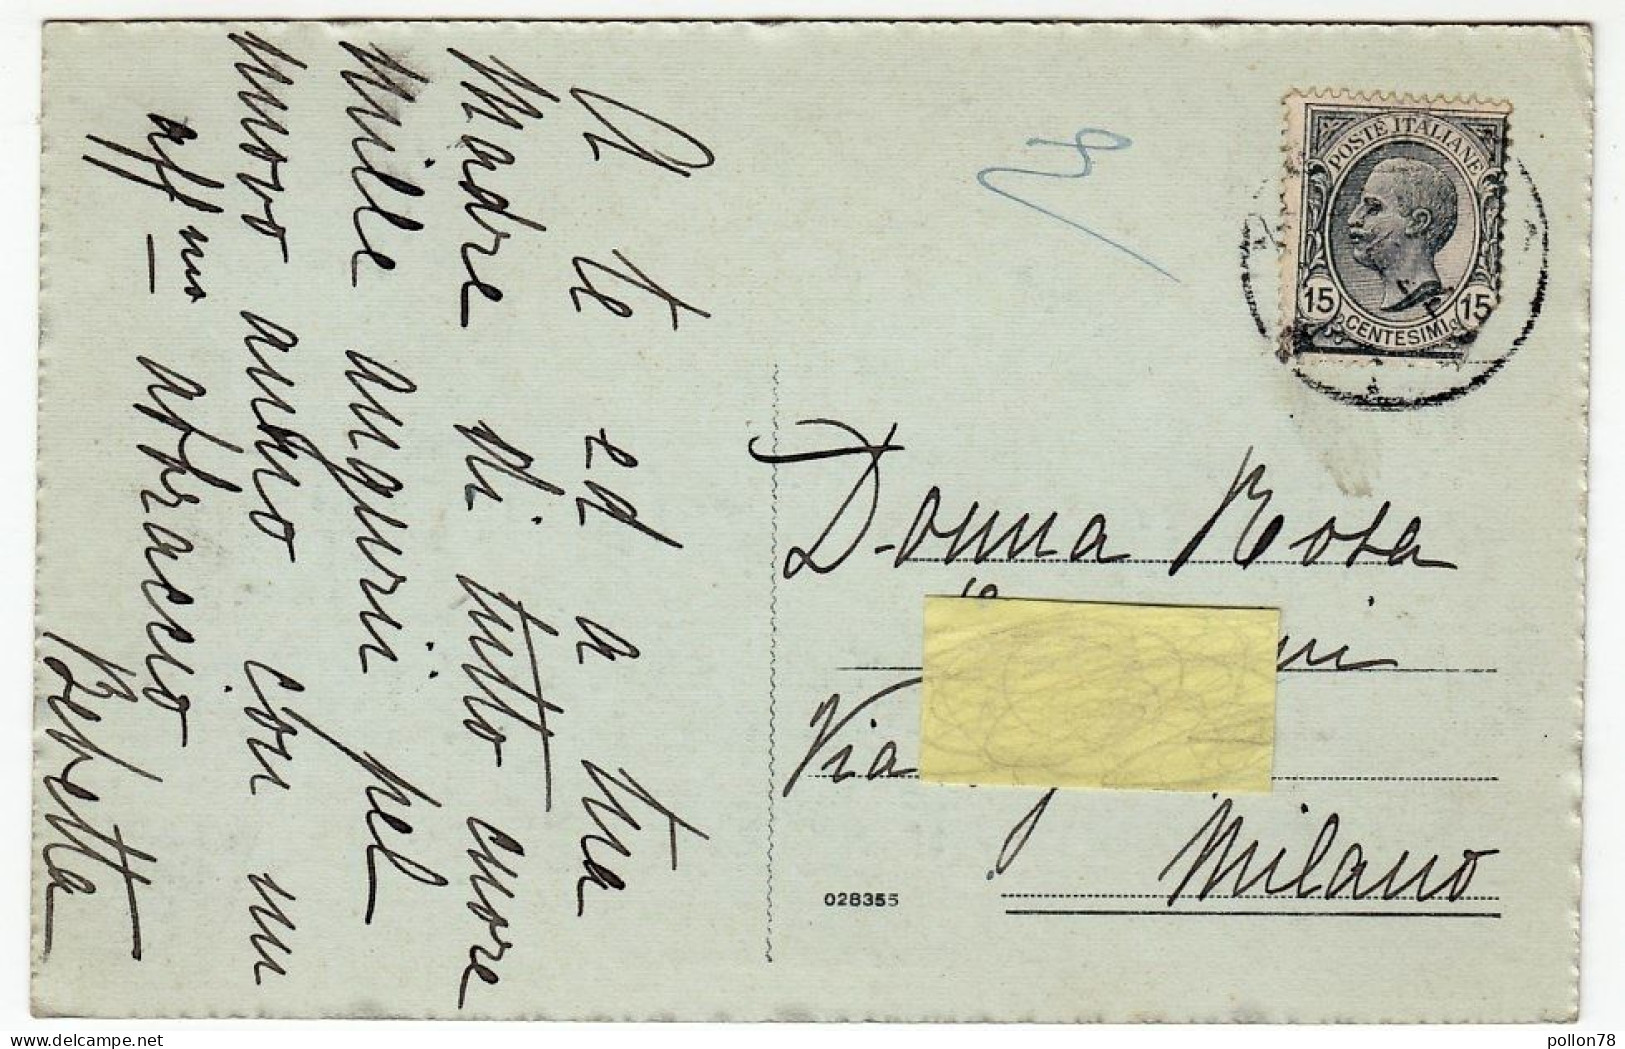 A te ed a tua
Madre di tutto cuore
mille auguri pel
nuovo anno con un
aff.mo abbraccio
Bebetta
POSTE ITALIANE
15 15
CENTESIMI
Donna Rosa
Via
Milano
028355
pollon78